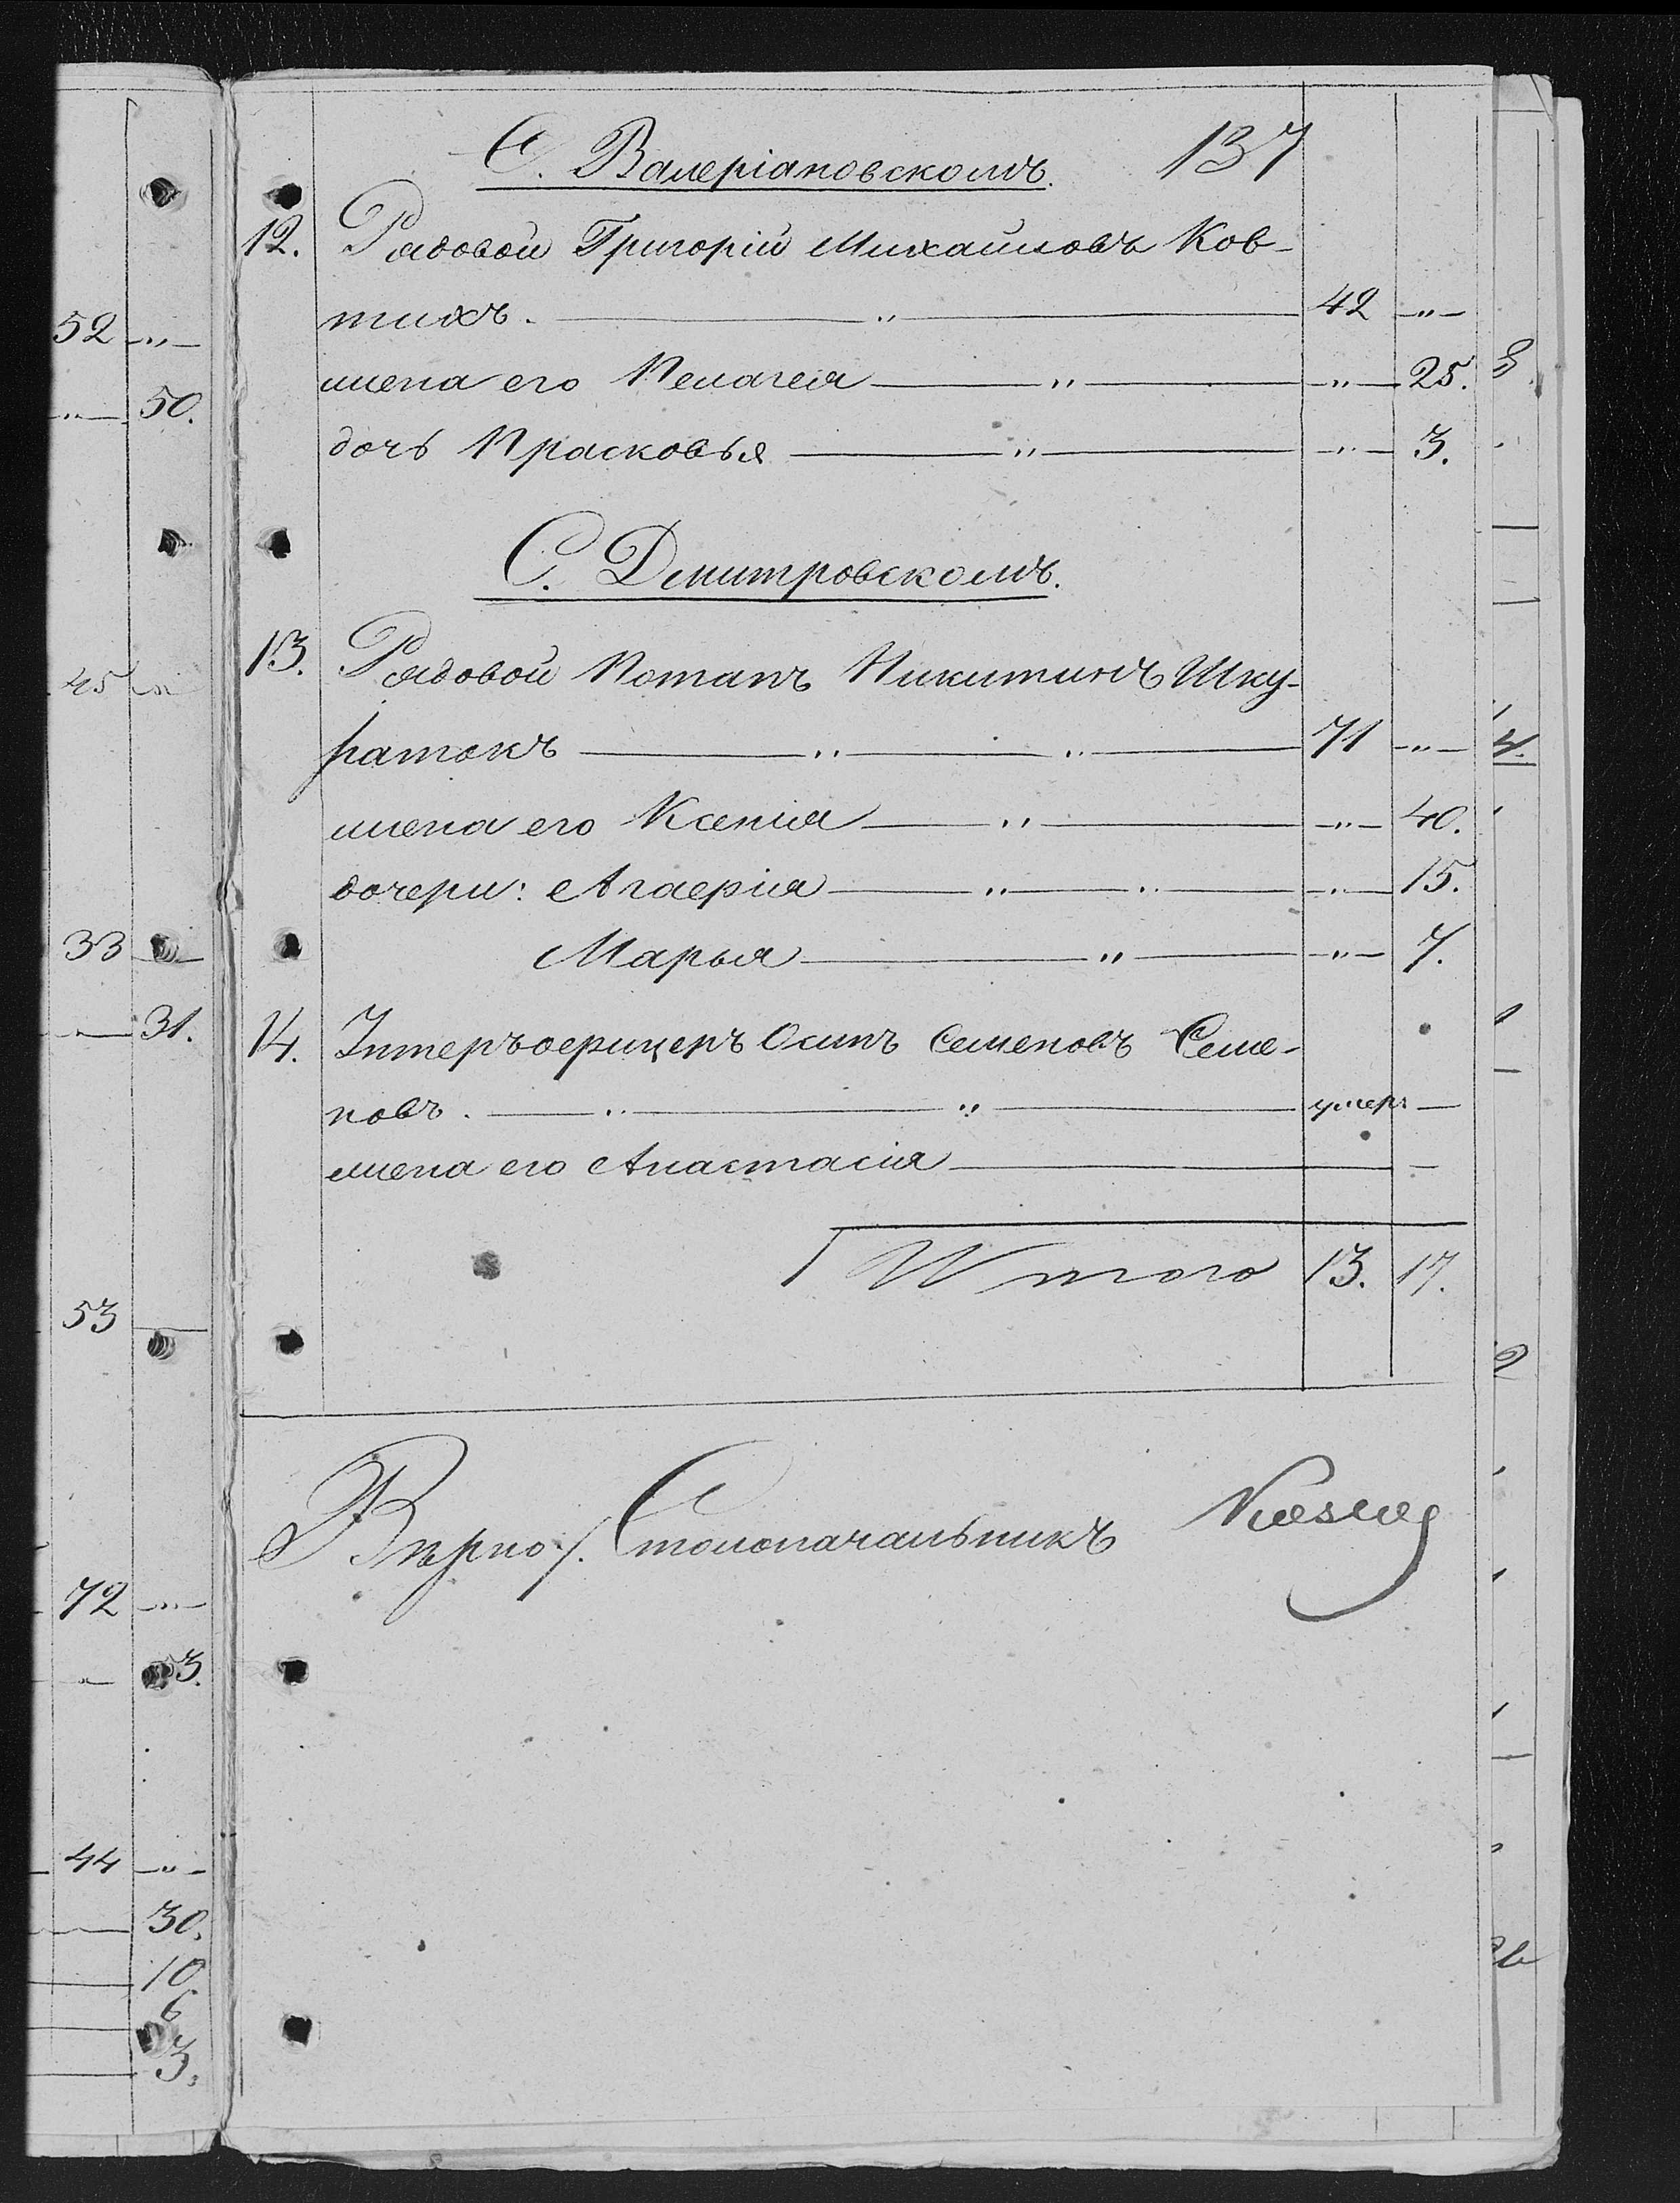 137
С. Валеріановскомъ.
12. Рядовой Григорій Михайловъ Ков-
тихъ. — " — 42 — " —
жена его Пелагея — " — " — 25.
дочь Прасковья — " — " — 3.
С. Дмитровскомъ.
13. Рядовой Потапъ Никитинъ Шку-
ратокъ — " — " — 71 — " —
жена его Ксенія — " — " — 40.
дочери: Агафія — " — " — " — 15.
Марья — " — " — 7.
14. Унтеръ офицеръ Осипъ Семеновъ Семе-
новъ. — " — " — умеръ —
жена его Анастасія — —
Итого 13. 17.
Вѣрно/. Столоначальникъ
52 — " —
" — 50.
45
33
31.
53
72 — " —
3.
44 — " —
30.
10.
6
3.